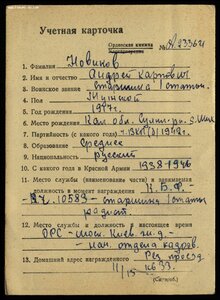 Учетная карточка
Орденская книжка
№ А/233621
1. Фамилия Новиков
2. Имя и отчество Андрей Карпович
3. Воинское звание старшина I статьи
4. Пол Мужской
5. Год рождения
6. Место рождения
7. Партийность (с какого года) чл. ВКП(б) 1942 г.
8. Образование Среднее
9. Национальность русский
10. С какого года в Красной Армии 1938-1946
11. Место службы (наименование части) и занимаемая
должность в момент награждения К.Б.Ф.
10583 – старшина I статьи
радист
12. Место службы и должность в настоящее время
ОРС – Моск. Киев. ж.д. –
нач. отдела кадров.
13. Домашний адрес награжденного
11/15 кв 33.